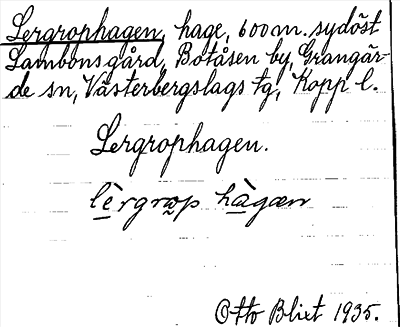 Lergrophagen, hage, 600 m. sydöst
Lambonsgård, Botåsen by, Grangär-
de sn, Västerbergslags tg, Kopp. l.
Lergrophagen.
lè̱rgro̰p hà̱gæn
Otto Blixt 1935.